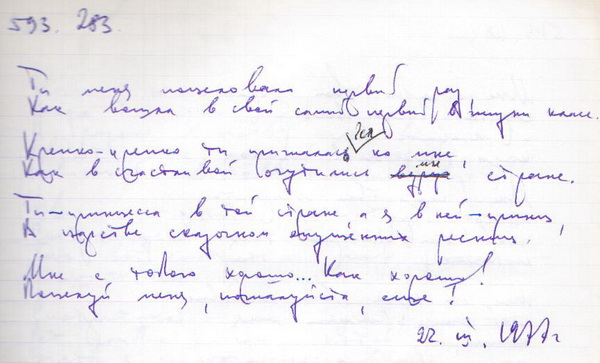 593. 283
Ты меня поцеловала первый раз
Как вошла в свой самый первый
класс.
Крепко-крепко ты прижалась ко мне,
Как в счастливой очутились мы стране.
Ты – принцесса в той стране а я в ней – принц,
В царстве сказочном опущенных ресниц.
Мне с тобою хорошо... Как хорошо!
Поцелуй меня, пожалуйста, еще!
22. III. 1977 г